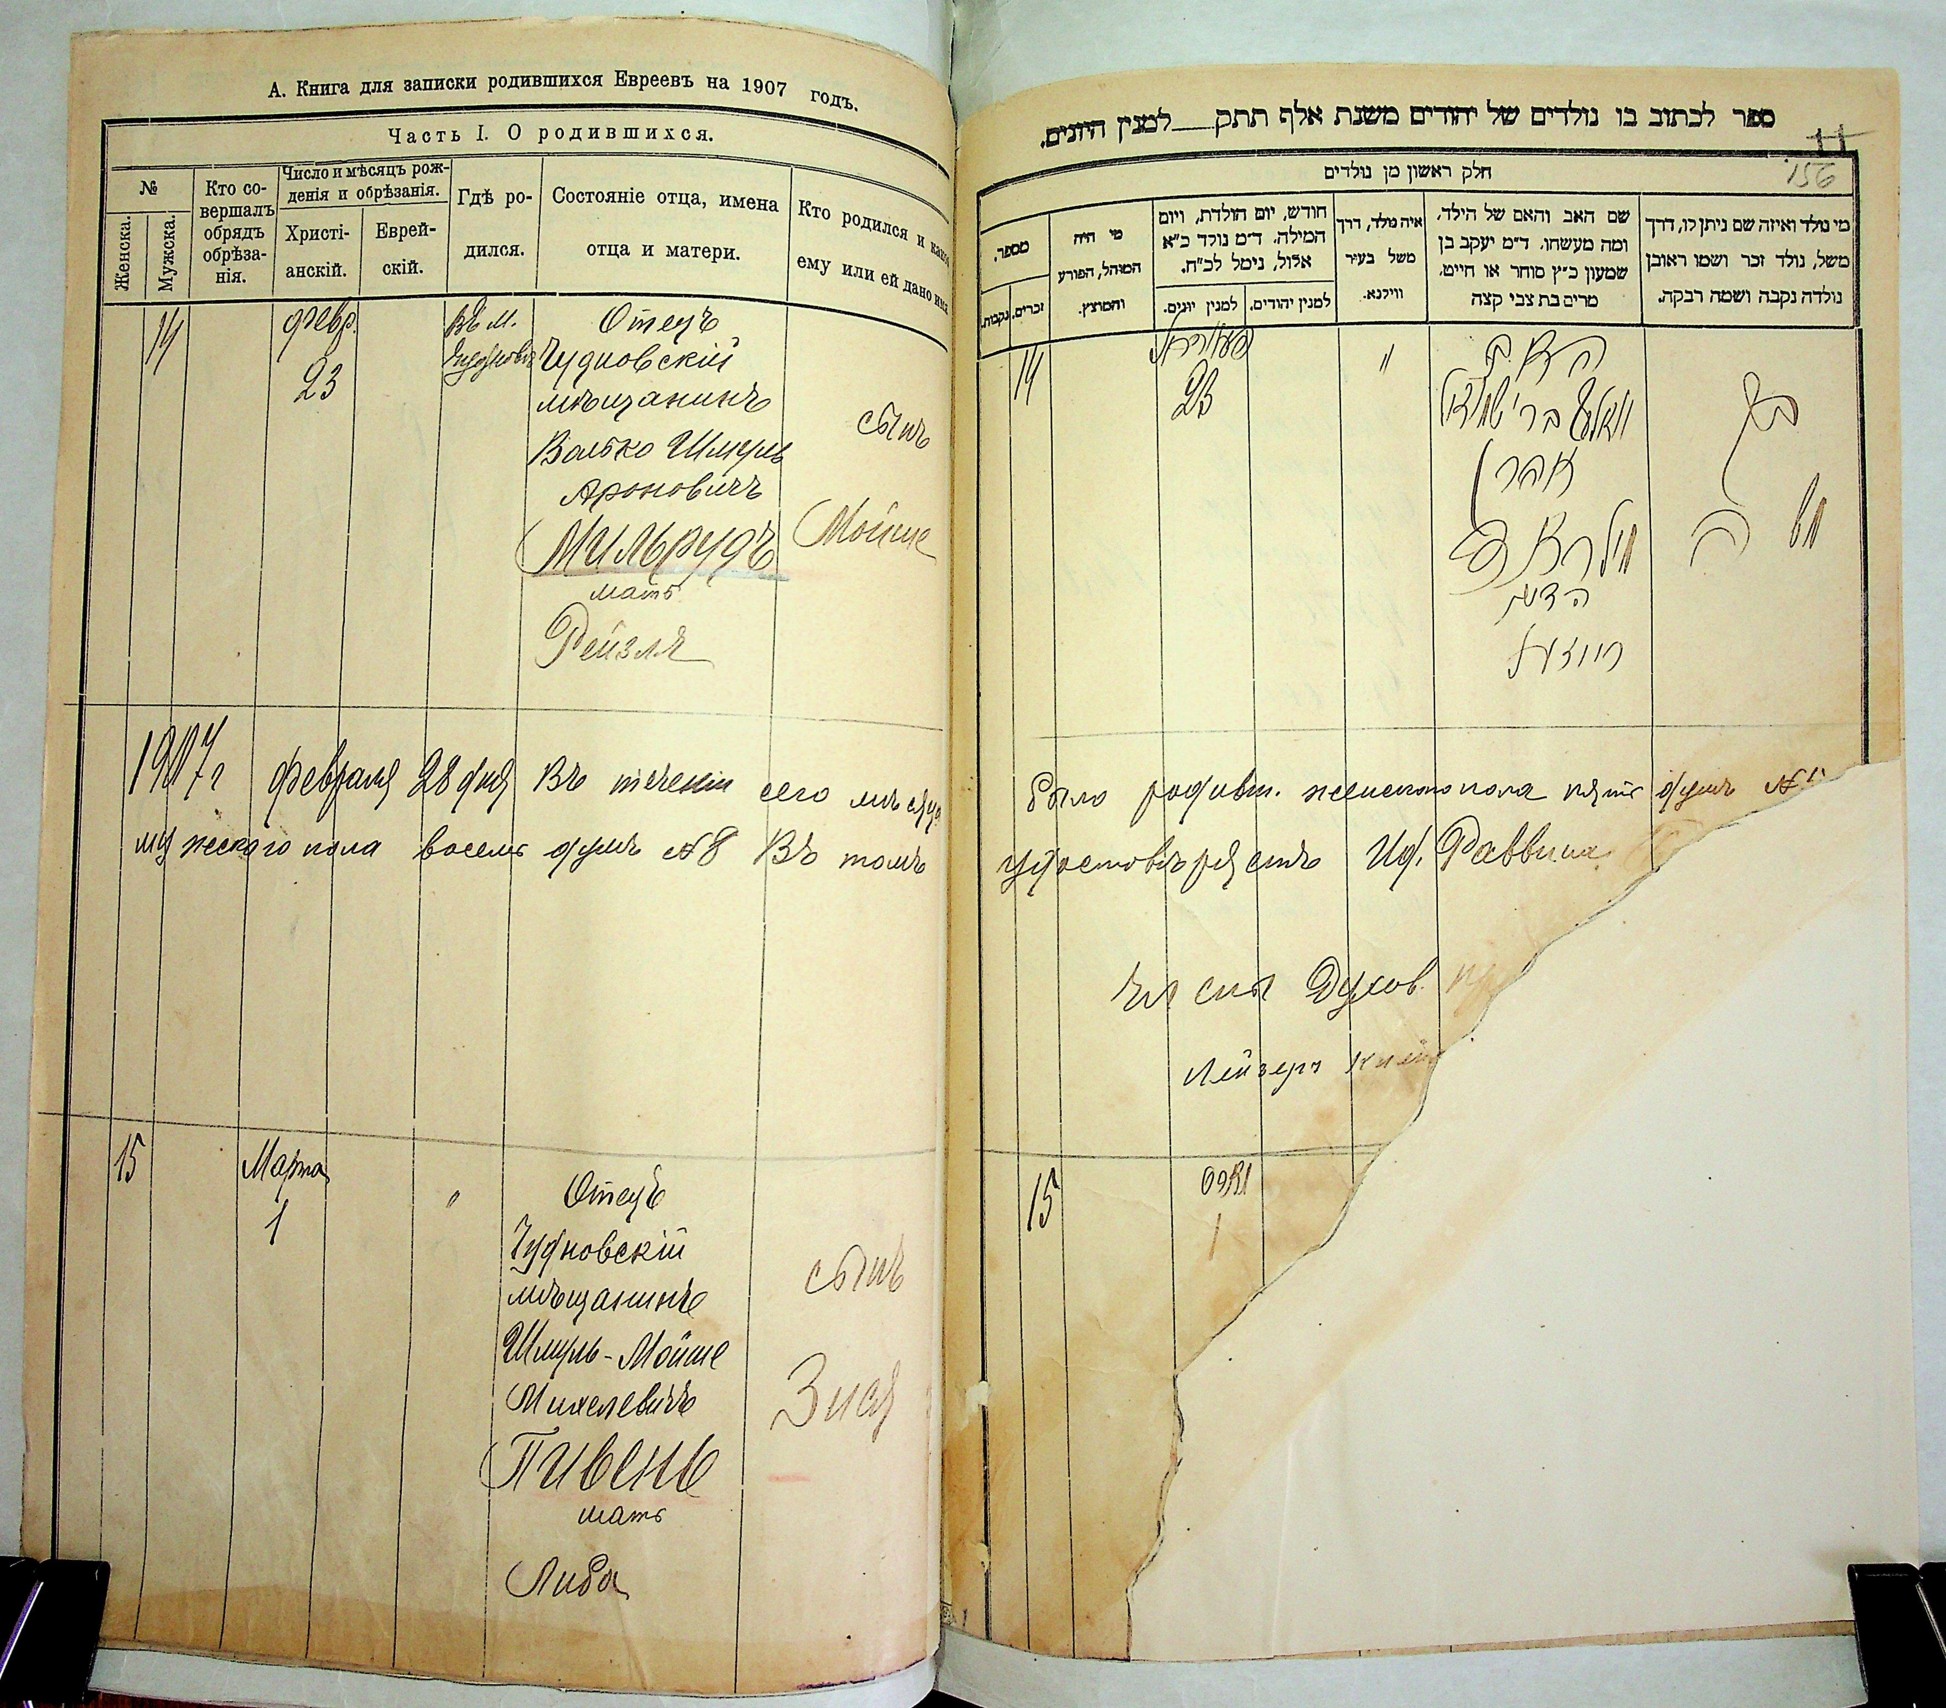 А. Книга для записки родившихся Евреевъ на 1907 годъ.
Часть I. О родившихся.
№
Женска.
Мужска.
Кто совершалъ обрядъ обрѣзанія.
Число и мѣсяцъ рожденія и обрѣзанія.
Христіанскій.
Еврейскій.
Гдѣ родился.
Состояніе отца, имена отца и матери.
Кто родился и какое ему или ей дано имя
14
Февр.
23
Въ м.
Отецъ
Чудновскій
мѣщанинъ
Волько Шмуль
Ароновичъ
Мильрудъ
мать
Рейзля
сынъ
Мойше
1907 г Февраля 28 дня Въ теченіи сего мѣсяца
мужескаго пола восемь душъ №8 Въ томъ
15
Марта
1
"
Отецъ
Чудновскій
мѣщанинъ
Шмуль-Мойше
Михелевичъ
Пивень
мать
Либа
сынъ
Зися
ספר לכתוב בו נולדים של יהודים משנת אלף תתק למנין היונים.
11
156
חלק ראשון מן נולדים
מי נולד ואיזה שם ניתן לו, דרך
משל, נולד זכר ושמו ראובן
נולדה נקבה ושמה רבקה.
שם האב והאם של הילד,
ומה מעשהו. ד״מ יעקב בן
שמעון כ״ץ סוחר או חייט,
מרים בת צבי קצה
איה נולד, דרך
משל בעיר
ווילנא.
חודש, יום הולדת, ויום
המילה. ד״מ נולד כ״א
אלול, נימל לכ״ח.
למנין יהודים.
למנין יונים.
מי היה
המוהל, הפורע
והמוצץ.
מספר.
זכרים.
נקבות.
14
23
"
15
1
было родивш. женскаго пола пять душъ
удостовѣряетъ Ид. Раввина
Духов.
Лейзеръ